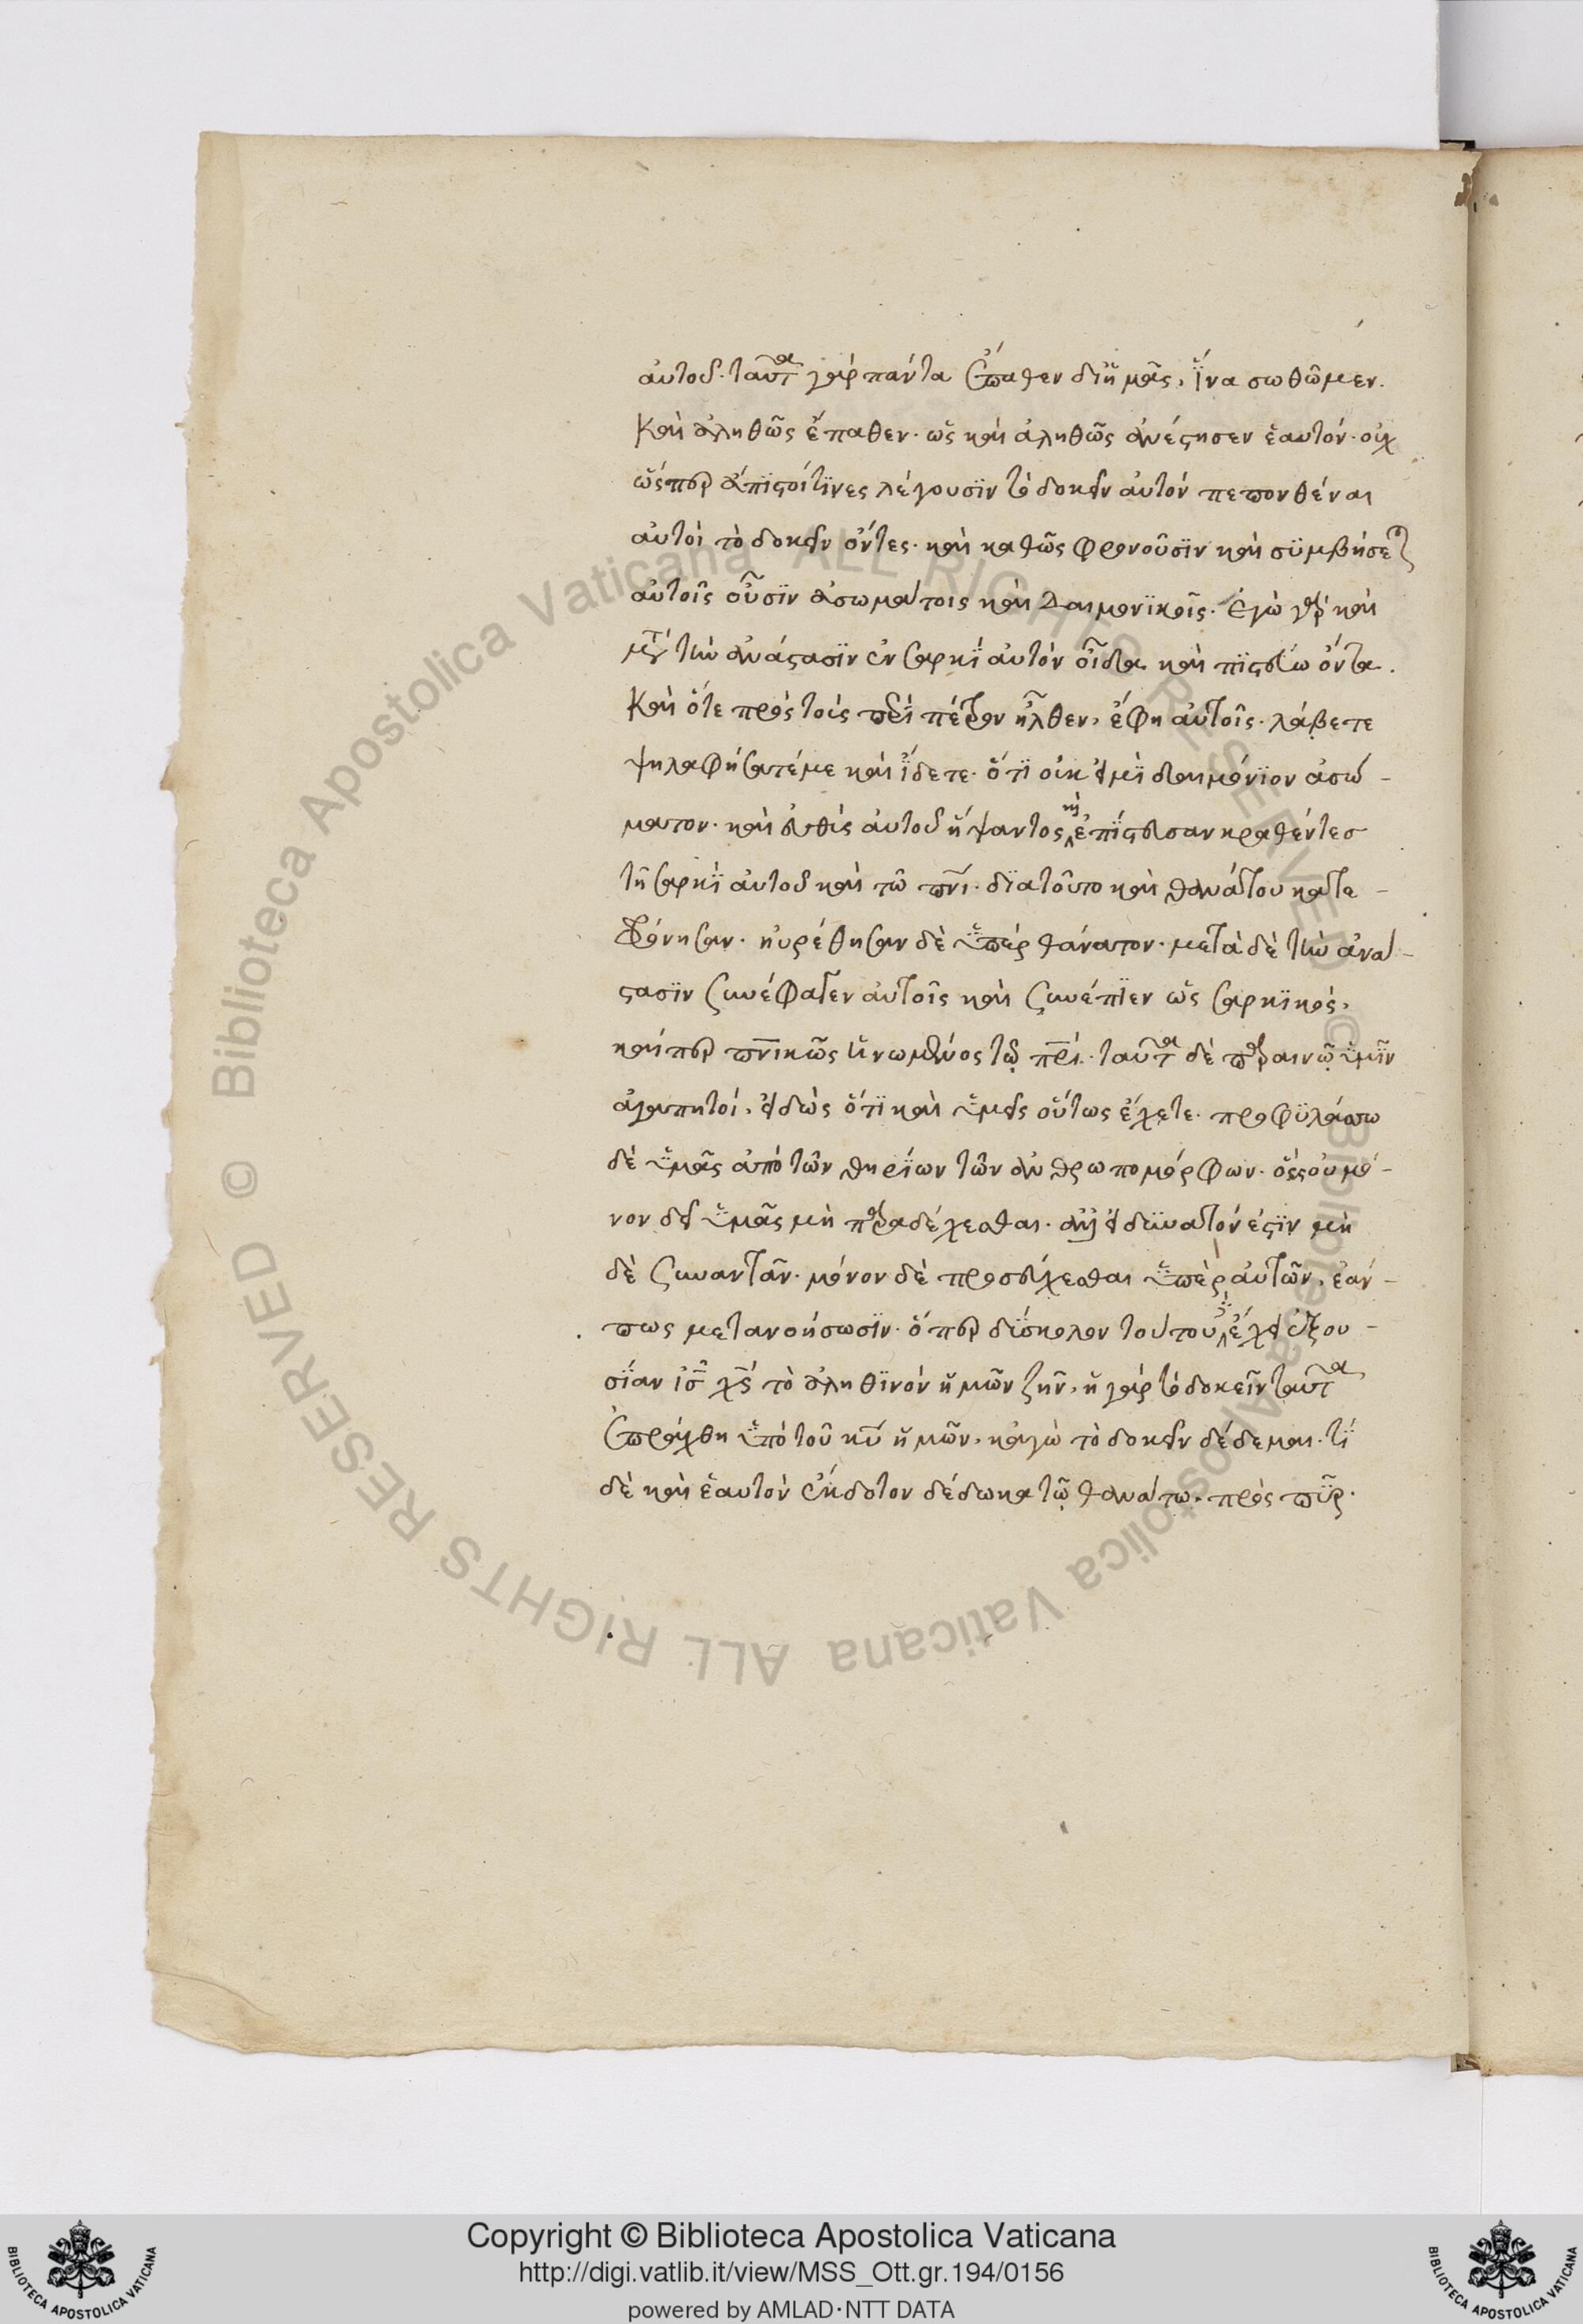 αὐτοῦ· ταῦτα γὰρ πάντα ἔπαθεν δι ἡμᾶς, ἵνα σωθῶμεν.
Καὶ ἀληθῶς ἔπαθεν· ὡς καὶ ἀληθῶς ἀνέστησεν ἑαυτόν· οὐχ
ὥσπερ ἄπιστοί τινες λέγουσϊν τὸ δοκεῖν αὐτὸν πεπονθέναι
αὐτοὶ τὸ δοκεῖν ὄντες· καὶ καθὼς φρονοῦσϊν καὶ συμβήσεται
αὐτοῖς οὖσϊν ἀσωμάτοις καὶ δαιμονϊκοῖς. ἐγὼ γὰρ καὶ
μετὰ τὴν ἀνάστασϊν ἐν σαρκὶ αὐτὸν οἶδα καὶ πϊστεύω ὄντα.
Καὶ ὅτε πρὸς τοὺς περὶ πέτρον ἦλθεν, ἔφη αὐτοῖς· λάβετε
ψηλαφήσατέ με καὶ ἴδετε· ὅτϊ οὐκ εἰμὶ δαιμόνϊον ἀσώ-
ματον· καὶ εὐθὺς αὐτοῦ ἥψαντο καὶ ἐπίστευσαν κραθέντες
τῇ σαρκὶ αὐτοῦ καὶ τῶ πνι· δϊατοῦτο καὶ θανάτου κατε-
φρόνησαν· ηὑρέθησαν δὲ ὑπὲρ θάνατον· μετὰ δὲ τὴν ἀνά-
στασϊν συνέφαγεν αὐτοῖς καὶ συνέπϊεν ὡς σαρκϊκός,
καίπερ πνικῶς ἡνωμένος τῷ πρι· ταῦτα δὲ παραινῶ ὑμῖν
ἀγαπητοί, εἰδὼς ὅτϊ καὶ ὑμεῖς οὕτως ἔχετε· προφϋλάσσω
δὲ ὑμᾶς ἀπὸ τῶν θηρϊων τῶν ἀνθρωπομόρφων· οὓς οὐ μό-
νον δεῖ ὑμᾶς μὴ παραδέχεσθαι· ἀλλ εἰ δυνατόν ἐστϊν μη
δὲ συναντᾶν· μόνον δὲ προσεύχεσθαι ὑπὲρ αὐτῶν, ἐάν-
πως μετανοήσωσϊν· ὅπερ δύσκολον τούτου δὲ ἔχει ἐξου-
σίαν ις χς τὸ ἀληθϊνὸν ἡμῶν ζῆν, ἢ γὰρ τὸ δοκεῖν ταῦτα
ἐπράχθη ὑπὸ τοῦ κυ ἡμῶν, κἀγὼ τὸ δοκεῖν δέδεμαι· τί
δὲ καὶ ἑαυτὸν ἔκδοτον δέδωκα τῷ θανάτω· πρὸς πῦρ·
Copyright © Biblioteca Apostolica Vaticana
http://digi.vatlib.it/view/MSS_Ott.gr.194/0156
powered by AMLAD·NTT DATA
BIBLIOTECA APOSTOLICA VATICANA
BIBLIOTECA APOSTOLICA VATICANA
© Biblioteca Apostolica Vaticana ALL RIGHTS RESERVED © Biblioteca Apostolica Vaticana ALL RIGHTS RESERVED